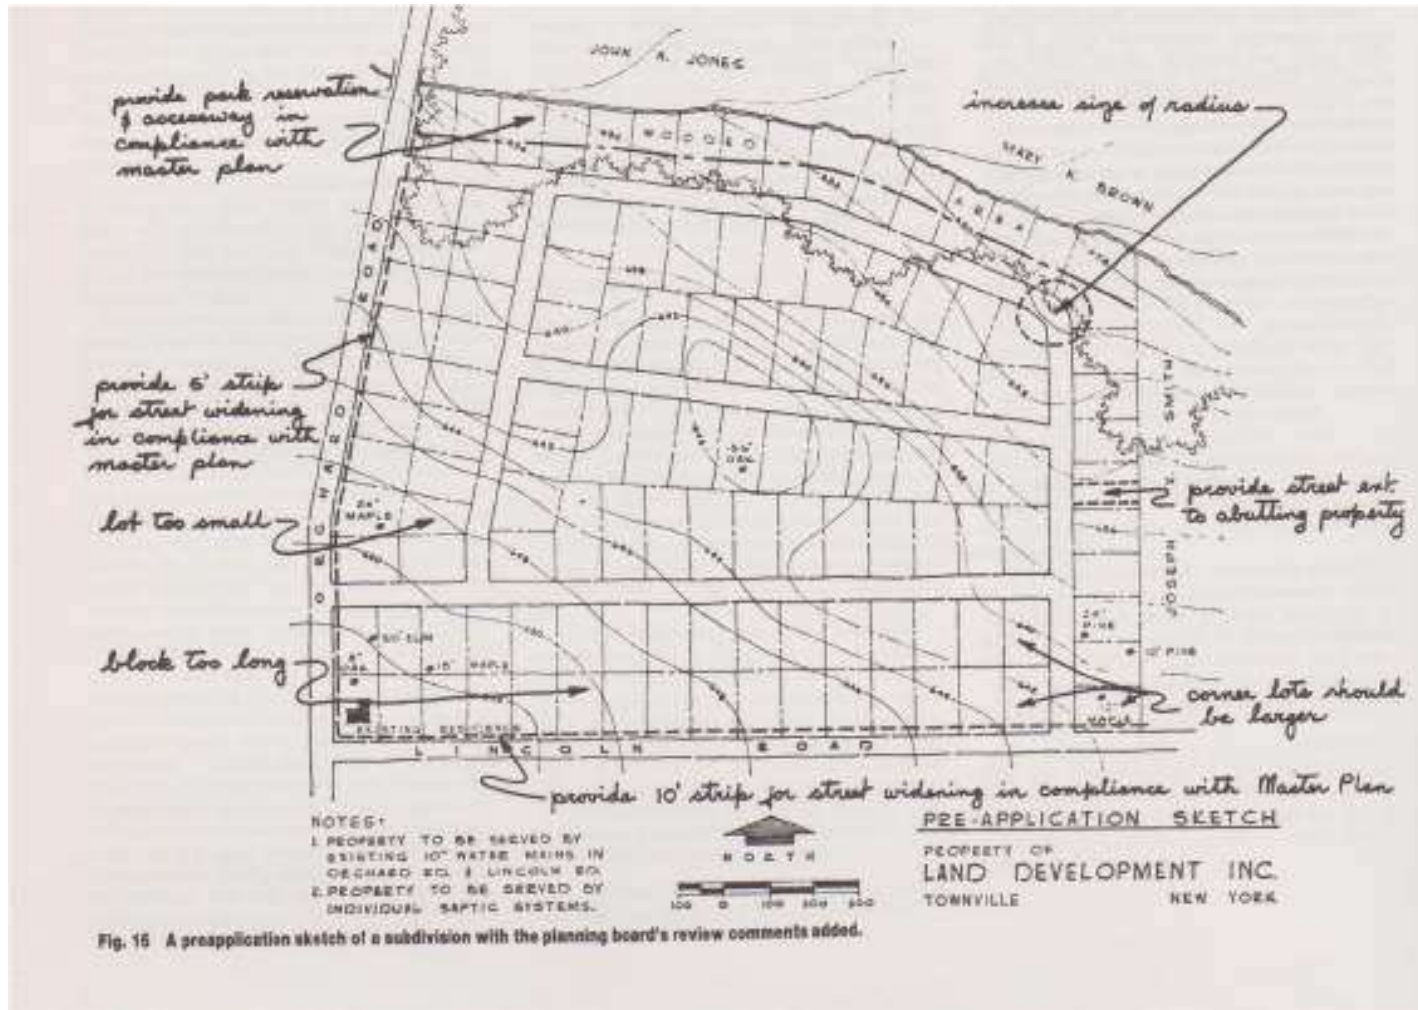 JOHN A. JONES
provide park reservation
& accessway in
compliance with
master plan
increase size of radius
MARY K. BROWN
WOODED
AREA
ORCHARD ROAD
provide 5' strip
for street widening
in compliance with
master plan
lot too small
24"
MAPLE
OAK
provide street ext.
to abutting property
JOSEPH Z. SMITH
block too long
ELM
15" MAPLE
OAK
24"
PINE
12" PINE
MAPLE
corner lots should
be larger
EXISTING RESIDENCE
LINCOLN ROAD
provide 10' strip for street widening in compliance with Master Plan
NOTES:
1. PROPERTY TO BE SERVED BY
EXISTING 10" WATER MAINS IN
ORCHARD RD. & LINCOLN RD.
2. PROPERTY TO BE SERVED BY
INDIVIDUAL SEPTIC SYSTEMS.
NORTH
100 0 100 200 300
PRE-APPLICATION SKETCH
PROPERTY OF
LAND DEVELOPMENT INC.
TOWNVILLE NEW YORK
Fig. 16 A preapplication sketch of a subdivision with the planning board's review comments added.